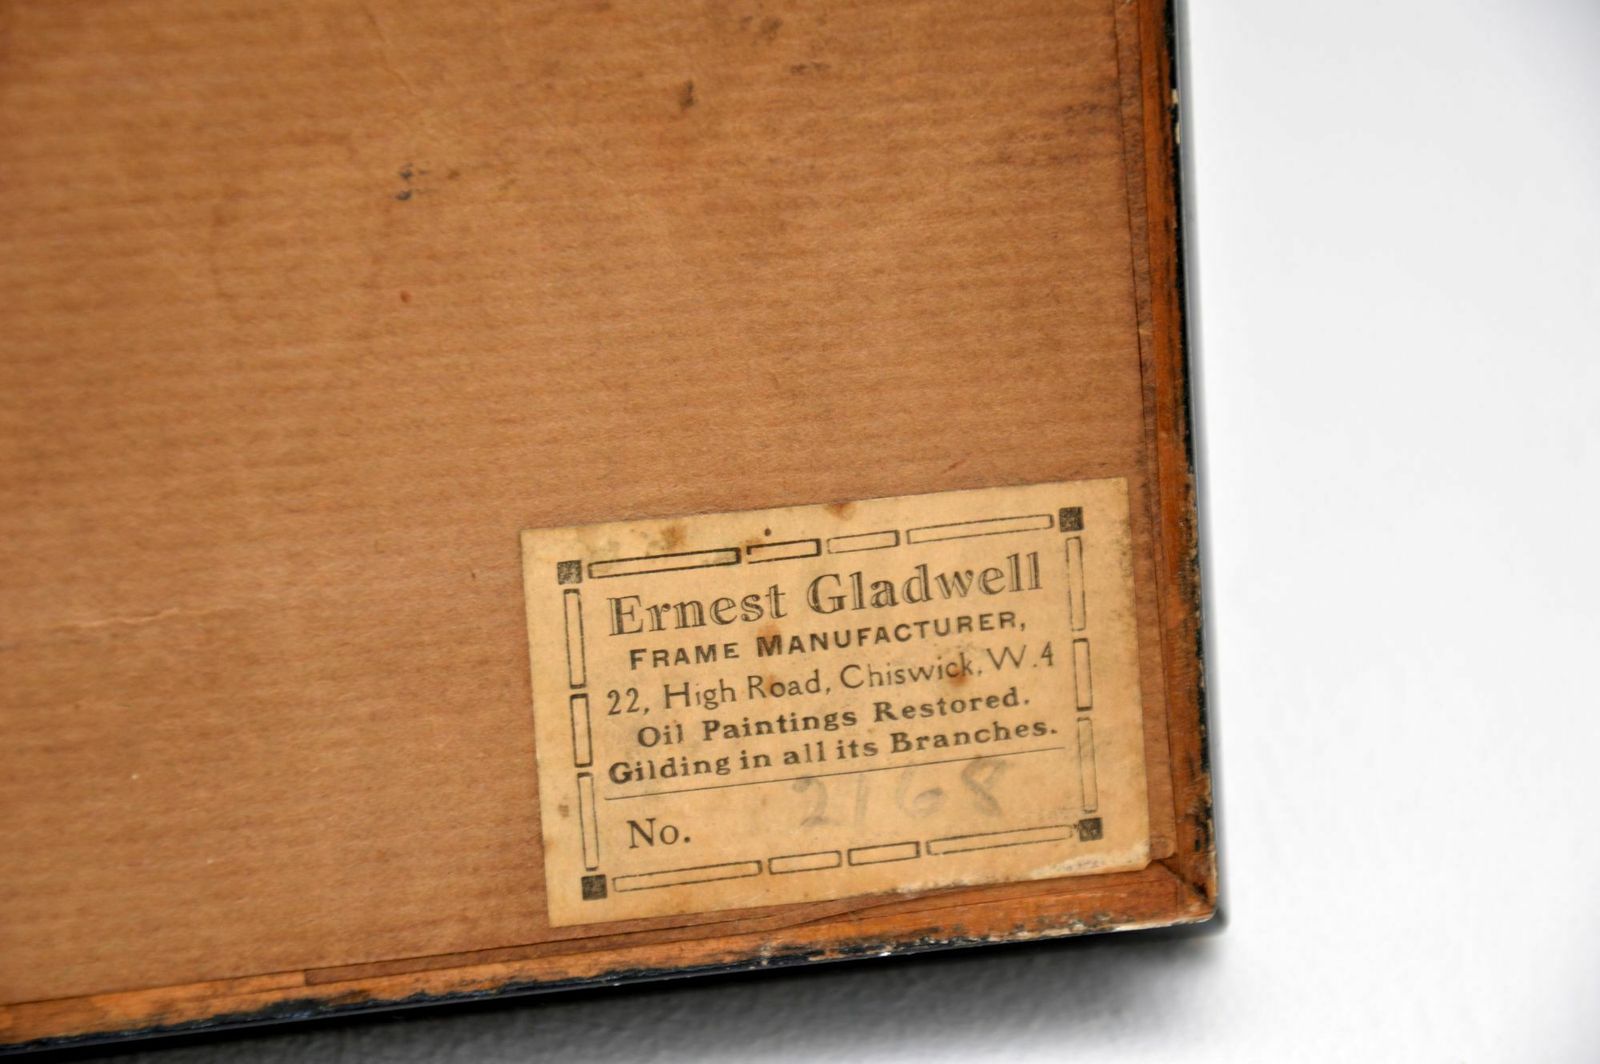 Ernest Gladwell
FRAME MANUFACTURER,
22, High Road, Chiswick, W.4
Oil Paintings Restored.
Gilding in all its Branches.
No. 2168